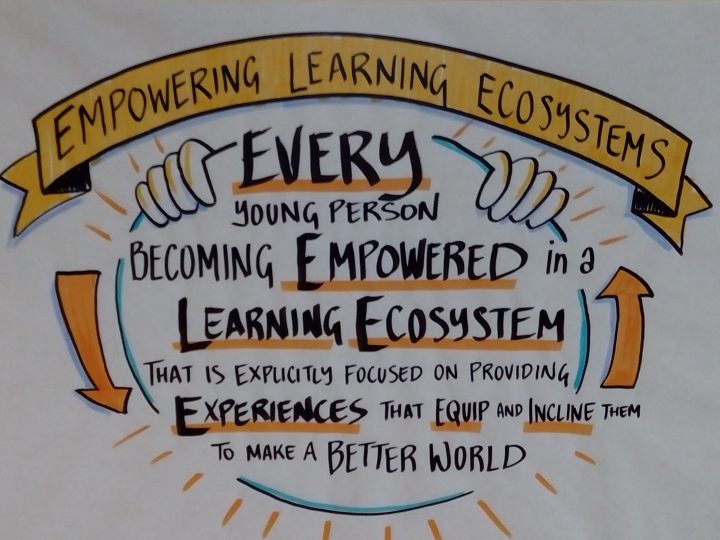 EMPOWERING LEARNING ECOSYSTEMS
EVERY
YOUNG PERSON
BECOMING EMPOWERED in a
LEARNING ECOSYSTEM
THAT IS EXPLICITLY FOCUSED ON PROVIDING
EXPERIENCES THAT EQUIP AND INCLINE THEM
TO MAKE A BETTER WORLD